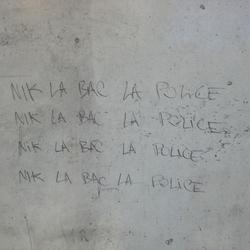 NIK LA BAC LA POLICE
NIK LA BAC LA POLICE
NIK LA BAC LA POLICE
NIK LA BAC LA POLICE